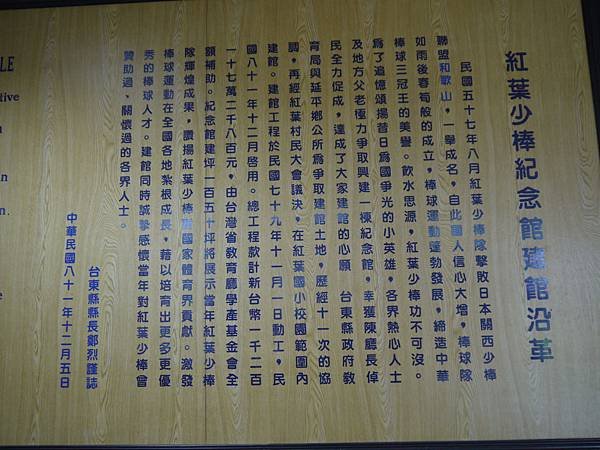 紅葉少棒紀念館建館沿革
民國五十七年八月紅葉少棒隊擊敗日本關西少棒
聯盟和歌山，一舉成名，自此國人信心大增，棒球隊
如雨後春荀般的成立，棒球運動蓬勃發展，締造中華
棒球三冠王的美譽。飲水思源，紅葉少棒功不可沒。
為了追憶頌揚昔日為國爭光的小英雄，各界熱心人士
及地方父老極力爭取興建一棟紀念館，幸獲陳廳長倬
民全力促成，達成了大家建館的心願 台東縣政府教
育局與延平鄉公所為爭取建館土地，歷經十一次的協
調，再經紅葉村民大會議決，在紅葉國小校園範圍內
建館。建館工程於民國七十九年十一月一日動工，民
國八十一年十二月啓用。總工程款計新台幣一千二百
一十七萬二千八百元，由台灣省教育廳學產基金會全
額補助。紀念館建坪一百五十坪將展示當年紅葉少棒
隊輝煌成果，讚揚紅葉少棒對國家體育界貢獻。激發
棒球運動在全國各地紮根成長，藉以培育出更多更優
秀的棒球人才。建館同時誠摯感懷當年對紅葉少棒曾
贊助過、關懷過的各界人士。
台東縣縣長鄭烈謹誌
中華民國八十一年十二月五日